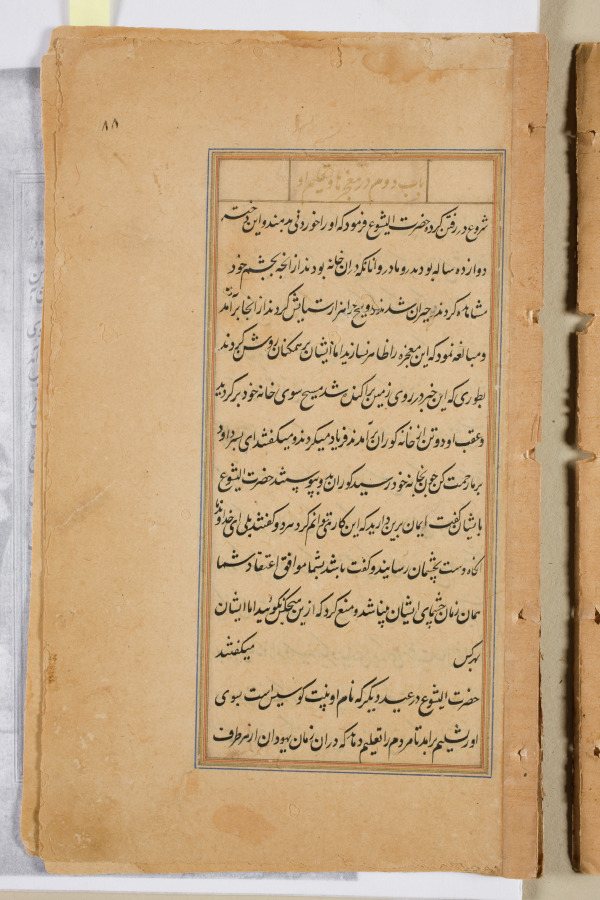 ۸۸
باب دوم در معجزها و تعلیم او
شروع در رفتن کرد حضرت الیشوع فرمود که او را خوردنی بدهند و این دختر
دوازده ساله بود پدر و مادر و انانکه دران خانه بودند از انچه بچشم خود
مشاهده کردند حیران شدند و مسیح را هزار ستایش کردند از انجا برآمد
و مبالغه نمود که این معجزه را ظاهر نسازید اما ایشان بر همکنان روشن کردند
بطوری که این خبر در روی زمین پراکنده شد مسیح سوی خانه خود برکردید
و عقب او دو تن از خانه کوران برآمدند فریاد میکردند و میکفتند ای پسر داود
بر ما رحمت کن چون بخانه خود رسید کوران بدو پیوستند حضرت الیشوع
با ایشان کفت ایمان برین دارید که این کار توانم کرد هر دو کفتند بلی ای خداوند
انکاه دست بچشمان رسانید و کفت باشد بشما موافق اعتقاد شما
همان زمان چشمهای ایشان بینا شد و منع کرد که ازین بهیچکس نکوئید اما ایشان
بهرکس میکفتند
حضرت الیشوع در عید دیکر که نام او پنتیکوستیس است بسوی
اورشلیم برآمد تا مردم را تعلیم دهد که دران زمان یهودان از هر طرف